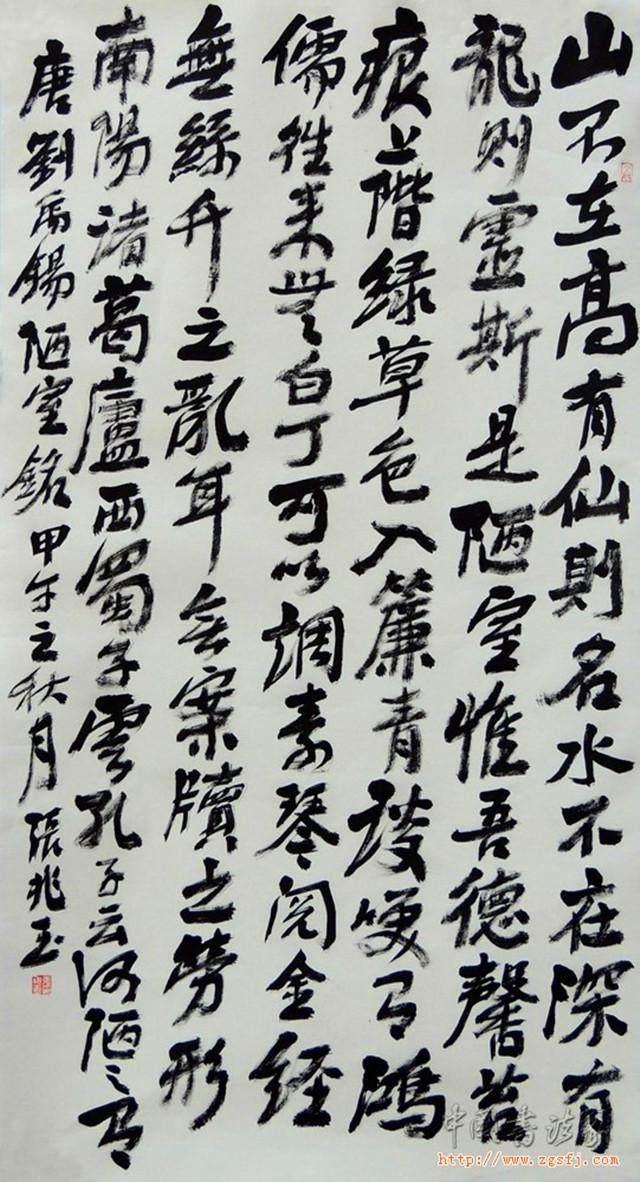 山不在高有仙則名水不在深有
龍则靈斯是陋室惟吾德馨苔
痕上階緑草色入簾青談笑有鴻
儒往来無白丁可以調素琴阅金經
無絲竹之亂耳無案牘之勞形
南陽诸葛廬西蜀子雲孔子云何陋之有
唐劉禹錫陋室銘甲午之秋月張兆玉
中國書法家
http://www.zgsfj.com